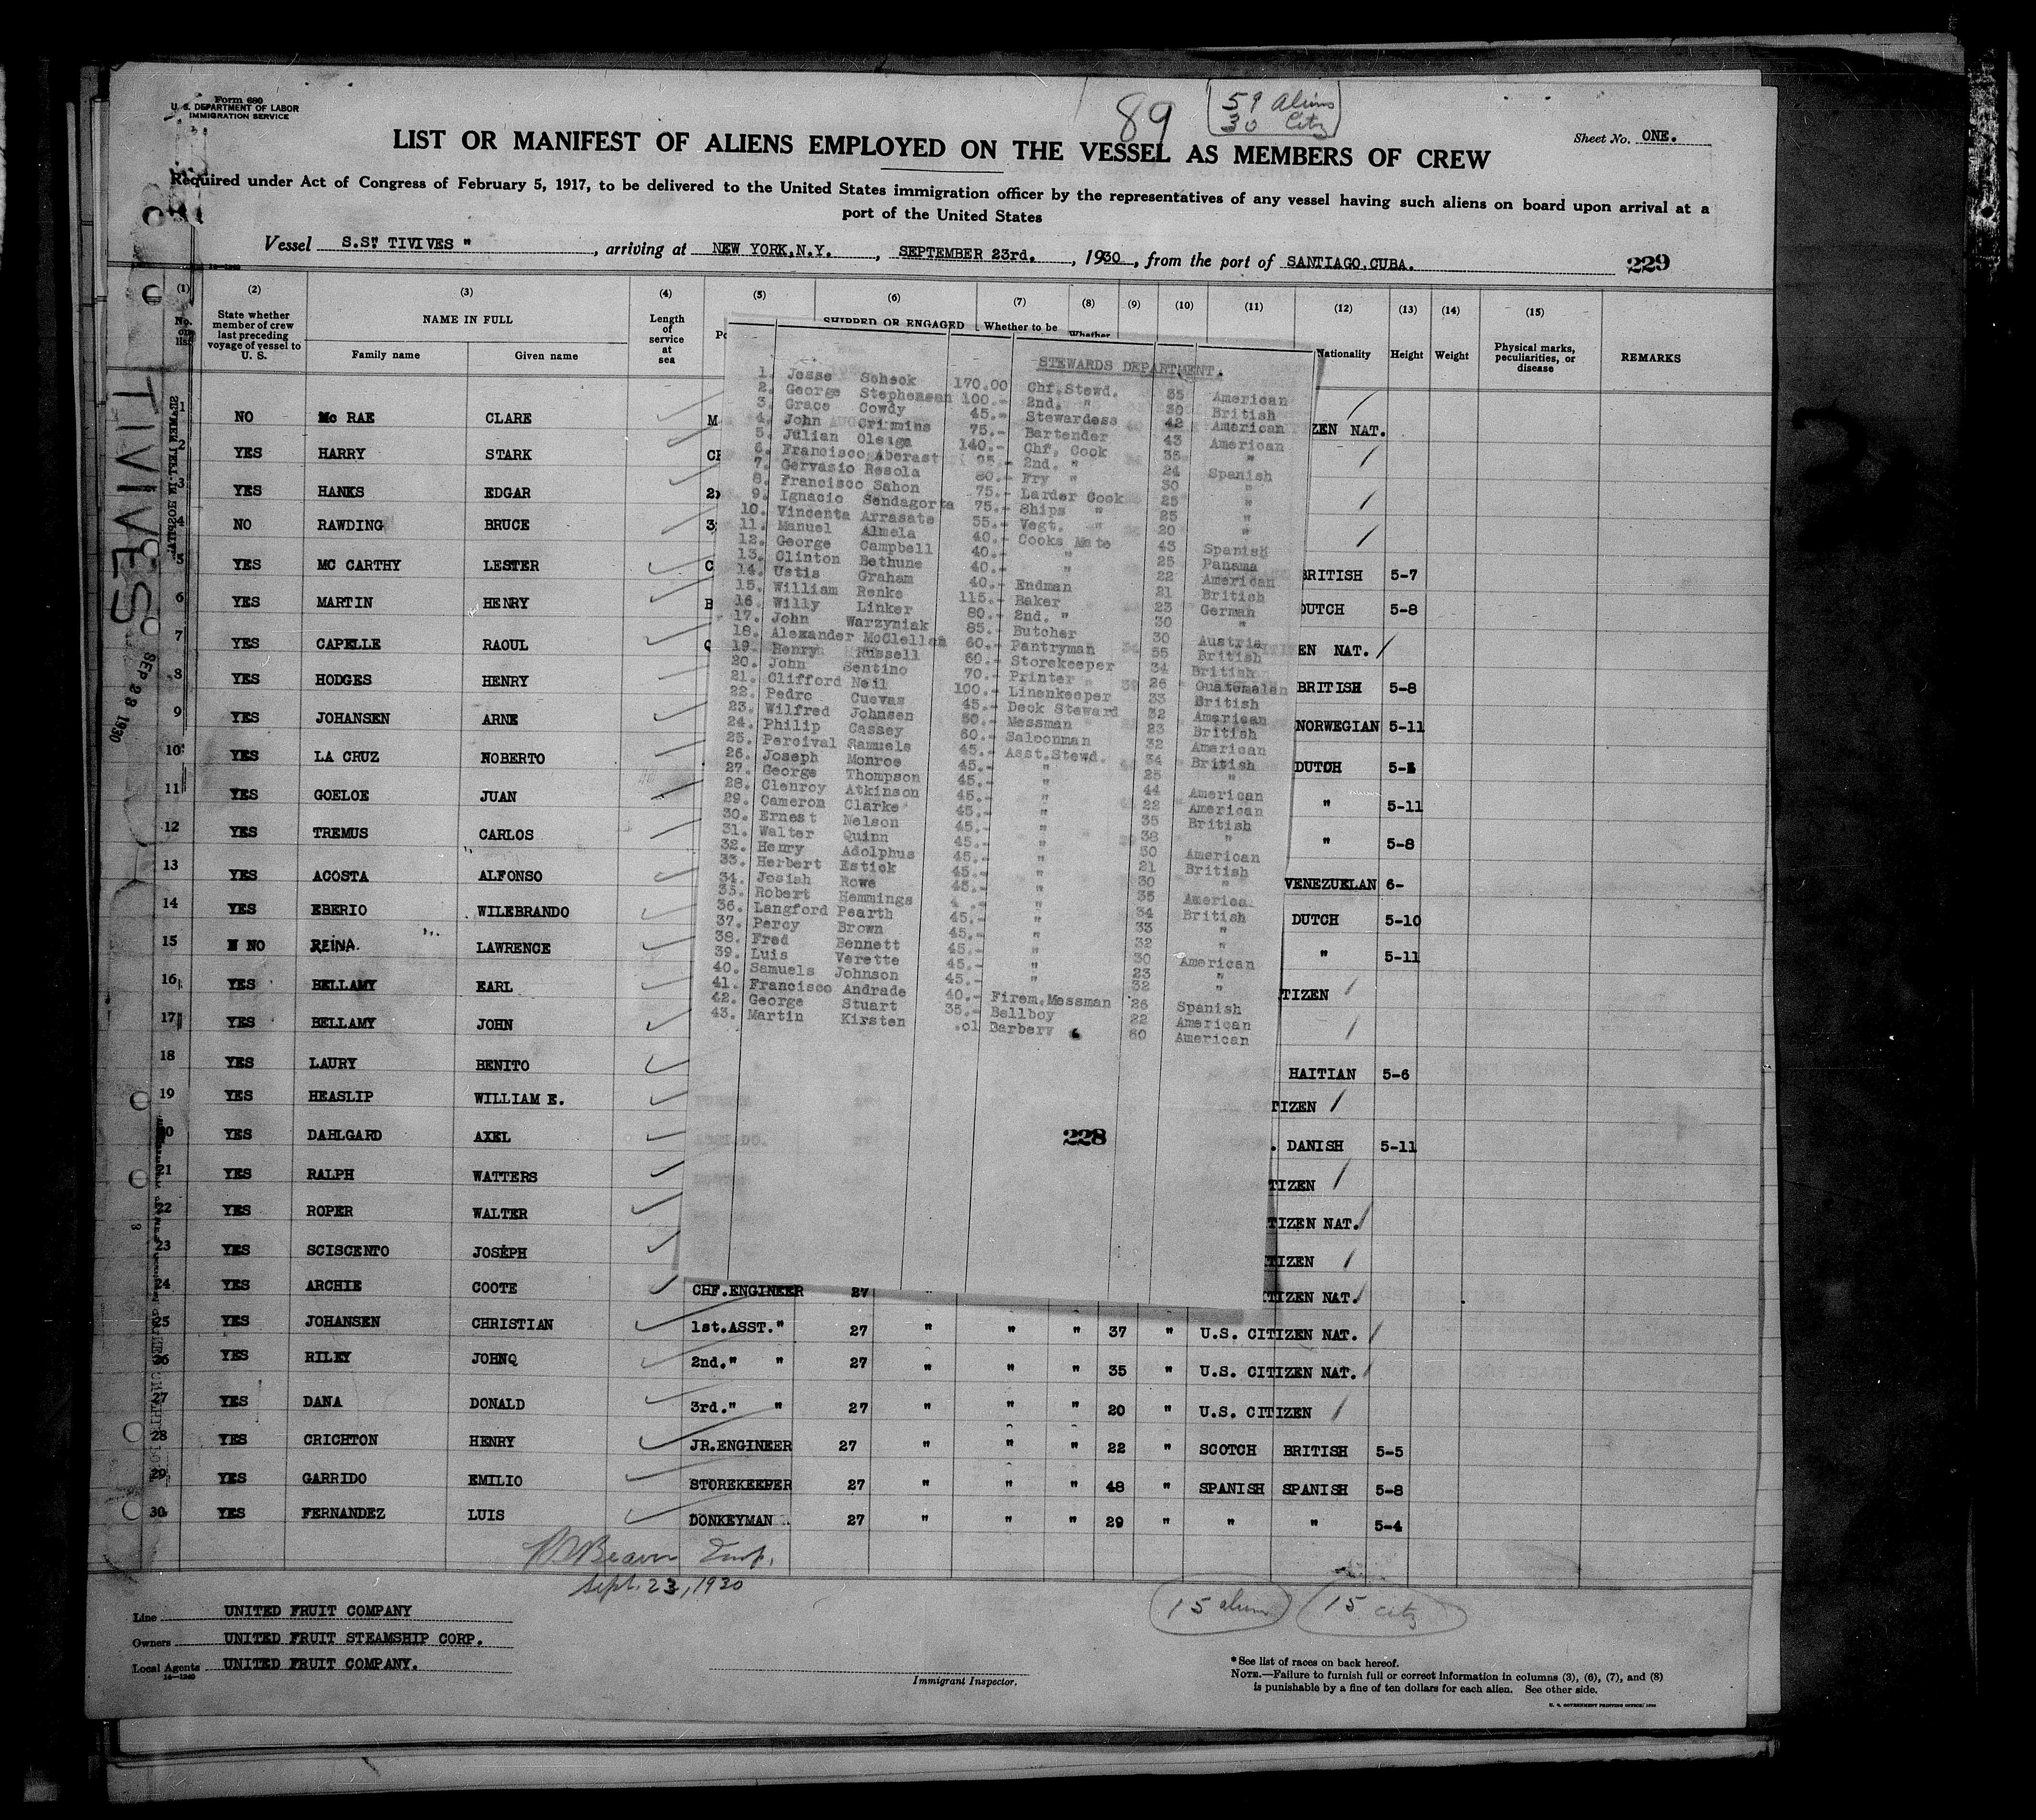 Form 680
U. S. DEPARTMENT OF LABOR
IMMIGRATION SERVICE
89
59 Aliens
30 Citz
Sheet No. ONE.
LIST OR MANIFEST OF ALIENS EMPLOYED ON THE VESSEL AS MEMBERS OF CREW
Required under Act of Congress of February 5, 1917, to be delivered to the United States immigration officer by the representatives of any vessel having such aliens on board upon arrival at a
port of the United States
Vessel S.S" TIVIVES ", arriving at NEW YORK,N.Y., SEPTEMBER 23rd., 1930, from the port of SANTIAGO,CUBA.
229
(1) (2) (3) (4) (5) (6) (7) (8) (9) (10) (11) (12) (13) (14) (15)
No. on list
State whether member of crew last preceding voyage of vessel to U. S.
NAME IN FULL
Family name Given name
Length of service at sea
SHIPPED OR ENGAGED
Whether to be
Whether
Nationality Height Weight
Physical marks, peculiarities, or disease
REMARKS
TIVIVES
SEP 23 1930
1 NO Mc RAE CLARE M ZEN NAT.
2 YES HARRY STARK
3 YES HANKS EDGAR
4 NO RAWDING BRUCE 3
5 YES MC CARTHY LESTER C BRITISH 5-7
6 YES MARTIN HENRY B DUTCH 5-8
7 YES CAPELLE RAOUL EN NAT.
8 YES HODGES HENRY BRITISH 5-8
9 YES JOHANSEN ARNE NORWEGIAN 5-11
10 YES LA CRUZ NOBERTO DUTCH
11 YES GOELOE JUAN " 5-11
12 YES TREMUS CARLOS " 5-8
13 YES ACOSTA ALFONSO VENEZUELAN 6-
14 YES EBERIO WILEBRANDO DUTCH 5-10
15 NO REINA. LAWRENCE " 5-11
16 YES BELLAMY EARL TIZEN
17 YES BELLAMY JOHN
18 YES LAURY BENITO HAITIAN 5-6
19 YES HEASLIP WILLIAM E. TIZEN
20 YES DAHLGARD AXEL DANISH 5-11
21 YES RALPH WATTERS TIZEN
22 YES ROPER WALTER TIZEN NAT.
23 YES SCISCENTO JOSEPH TIZEN
24 YES ARCHIE COOTE CHF.ENGINEER 27 TIZEN NAT.
25 YES JOHANSEN CHRISTIAN 1st.ASST." 27 " " " 37 " U.S. CITIZEN NAT.
26 YES RILEY JOHNQ 2nd." " 27 " " " 35 " U.S. CITIZEN NAT.
27 YES DANA DONALD 3rd." " 27 " " " 20 " U.S. CITIZEN
28 YES CRICHTON HENRY JR.ENGINEER 27 " " " 22 " SCOTCH BRITISH 5-5
29 YES GARRIDO EMILIO STOREKEEPER 27 " " " 48 " SPANISH SPANISH 5-8
30 YES FERNANDEZ LUIS DONKEYMAN 27 " " " 29 " " " 5-4
STEWARDS DEPARTMENT.
1. Jesse Scheck 170.00 Chf.Stewd. 35 American
2. George Stephensan 100.- 2nd. " 30 British
3. Grace Cowdy 45.- Stewardess 42 American
4. John Crimmins 75.- Bartender 43 American
5. Julian Oleiga 140.- Chf. Cook 35 "
6. Francisco Aberast 2nd. " 24 Spanish
7. Gervasio Resola 80.- Fry " 30 "
8. Francisco Sahon 75.- Larder Cook 25 "
9. Ignacio Sendagorta 75.- Ships " 25 "
10. Vincenta Arrasate 55.- Vegt. " 20 "
11. Manuel Almela 40.- Cooks Mate 43 Spanish
12. George Campbell 40.- " 25 Panama
13. Clinton Bethune 40.- " 22 American
14. Ustis Graham 40.- Endman 21 British
15. William Renke 115.- Baker 23 German
16. Willy Linker 80.- 2nd. " 30 "
17. John Warzyniak 85.- Butcher 30 Austria
18. Alexander McClellan 60.- Pantryman 55 British
19. Henry Russell 60.- Storekeeper 34 British
20. John Sentino 70.- Printer 26 Guatemalan
21. Clifford Neil 100.- Linenkeeper 33 British
22. Pedro Cuevas 45.- Deck Steward 32 American
23. Wilfred Johnsen 50.- Messman 23 British
24. Philip Cassey 60.- Saloonman 32 American
25. Percival Samuels 45.- Asst.Stewd. 34 British
26. Joseph Monroe 45.- " 25 "
27. George Thompson 45.- " 44 American
28. Clenroy Atkinson 45.- " 22 American
29. Cameron Clarke 45.- " 35 British
30. Ernest Nelson 45.- " 38 "
31. Walter Quinn 45.- " 50 American
32. Henry Adolphus 45.- " 21 British
33. Herbert Estick 45.- " 30 "
34. Josiah Rowe 45.- " 35 America
35. Robert Hemmings " 34 British
36. Langford Pearth 45.- " 33 "
37. Percy Brown 45.- " 32 "
38. Fred Bennett 45.- " 30 American
39. Luis Verette 45.- " 23 "
40. Samuels Johnson 45.- " 32 "
41. Francisco Andrade 40.- Firem.Messman 26 Spanish
42. George Stuart 35.- Bellboy 22 American
43. Martin Kirsten .01 Barbery 60 American
228
Sept. 23, 1930
15 aliens 15 citz
Line UNITED FRUIT COMPANY
Owners UNITED FRUIT STEAMSHIP CORP.
Local Agents UNITED FRUIT COMPANY.
14—1240
Immigrant Inspector.
*See list of races on back hereof.
NOTE.—Failure to furnish full or correct information in columns (3), (6), (7), and (8)
is punishable by a fine of ten dollars for each alien. See other side.